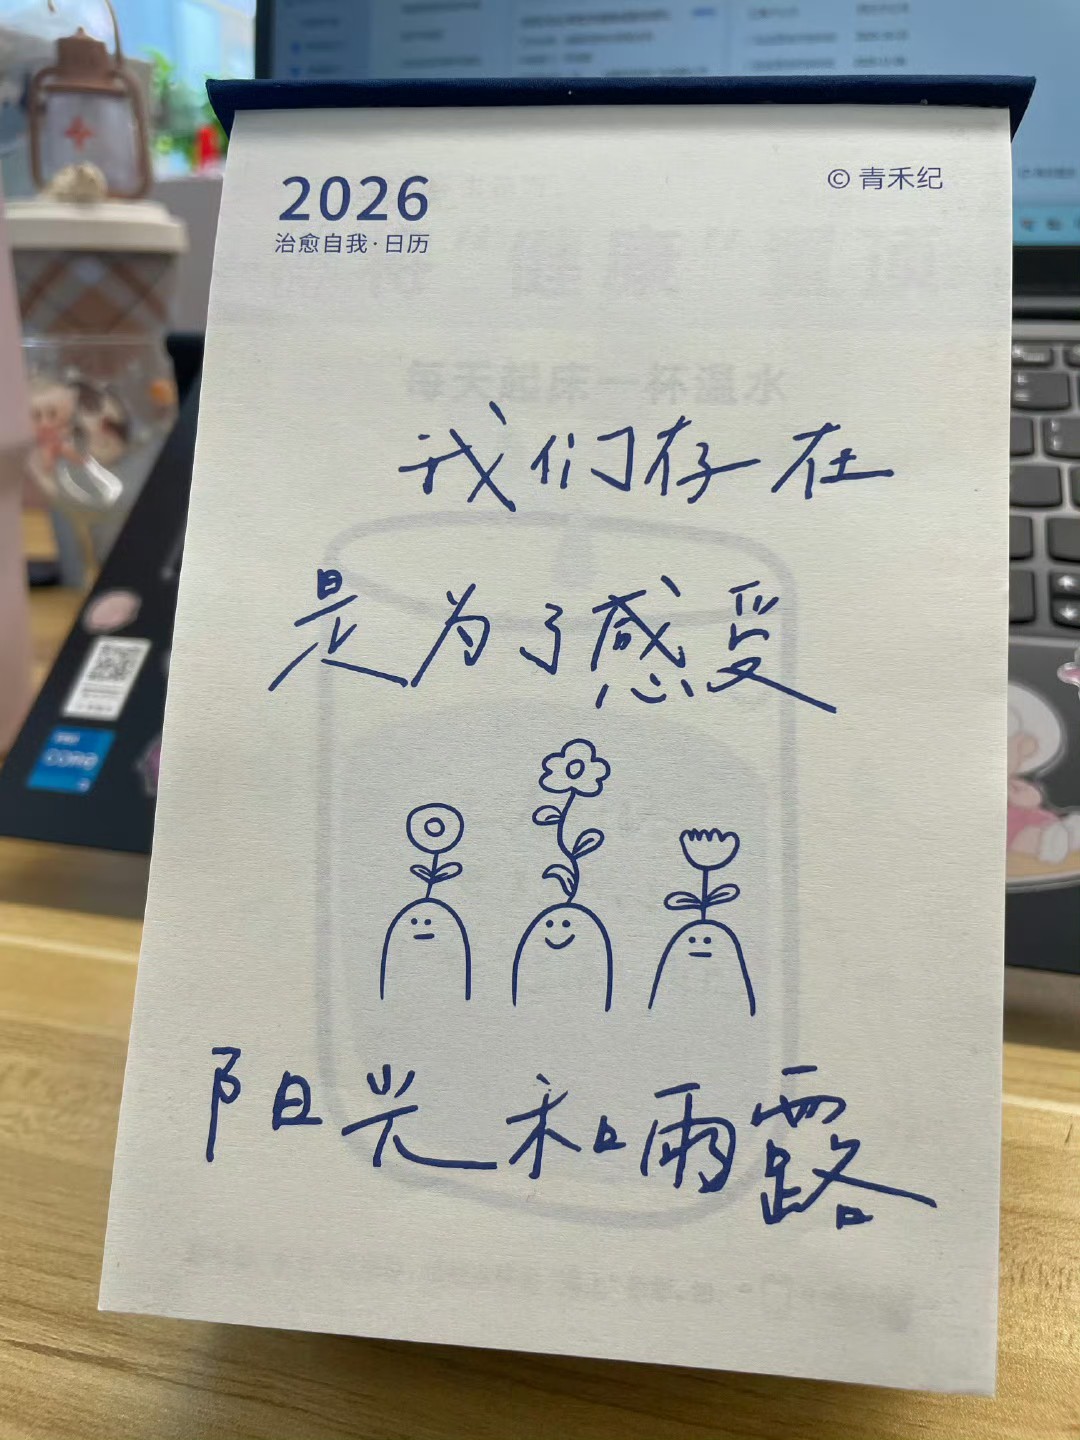 2026
治愈自我·日历
© 青禾纪
每天起床一杯温水
我们存在
是为了感受
阳光和雨露
core